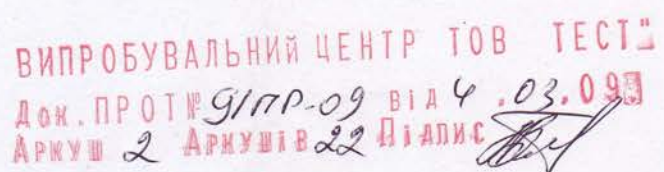 ВИПРОБУВАЛЬНИЙ ЦЕНТР ТОВ ТЕСТ"
Док. ПРОТ № 91ПР-09 ВІД 4 .03.09
Аркуш 2 Аркушів 22 Підпис